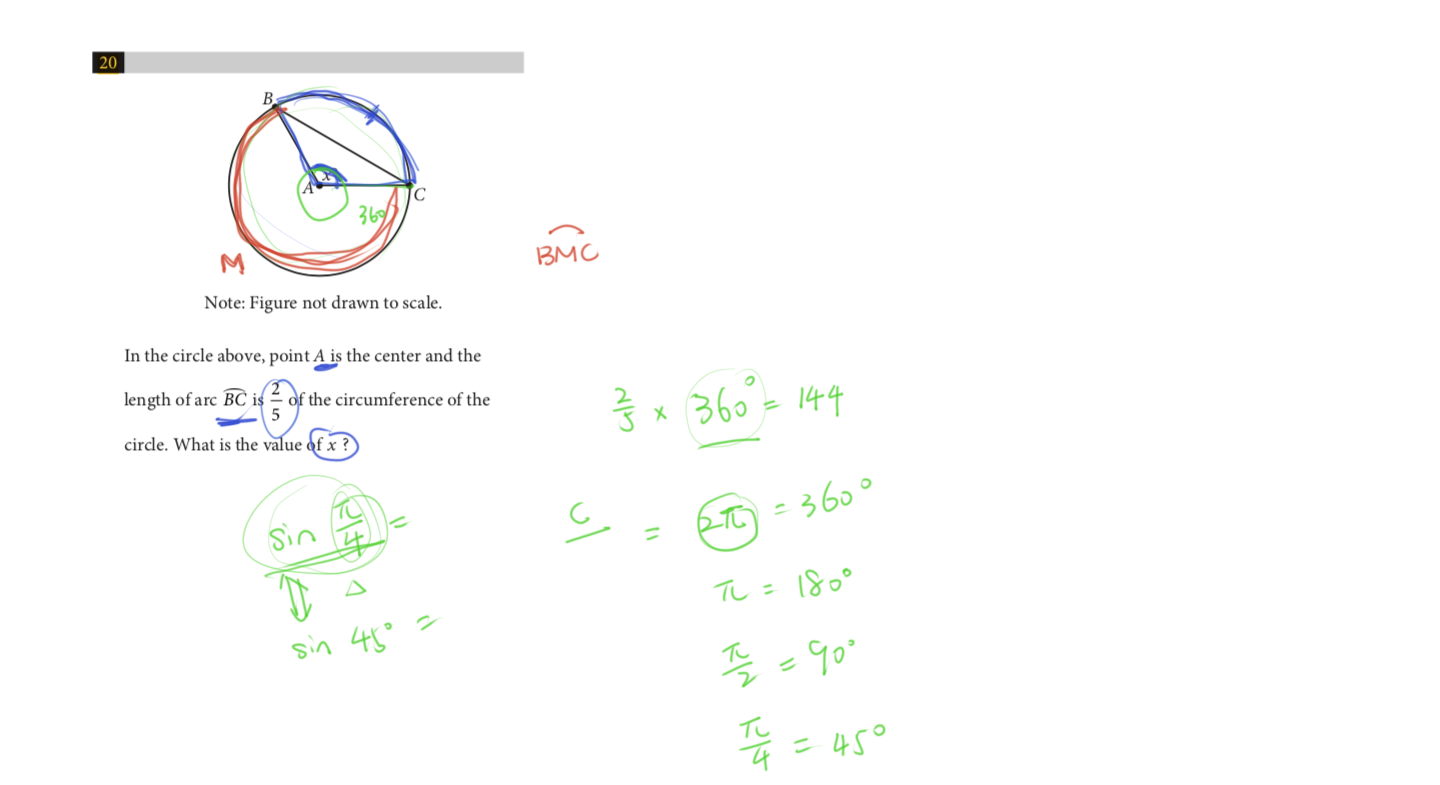 20
B
x
A
C
360
M
BMC
Note: Figure not drawn to scale.
In the circle above, point A is the center and the
length of arc BC is 2/5 of the circumference of the
circle. What is the value of x ?
2/5 × 360° = 144
C = 2π = 360°
π = 180°
π/2 = 90°
π/4 = 45°
sin π/4 =
Δ
sin 45° =